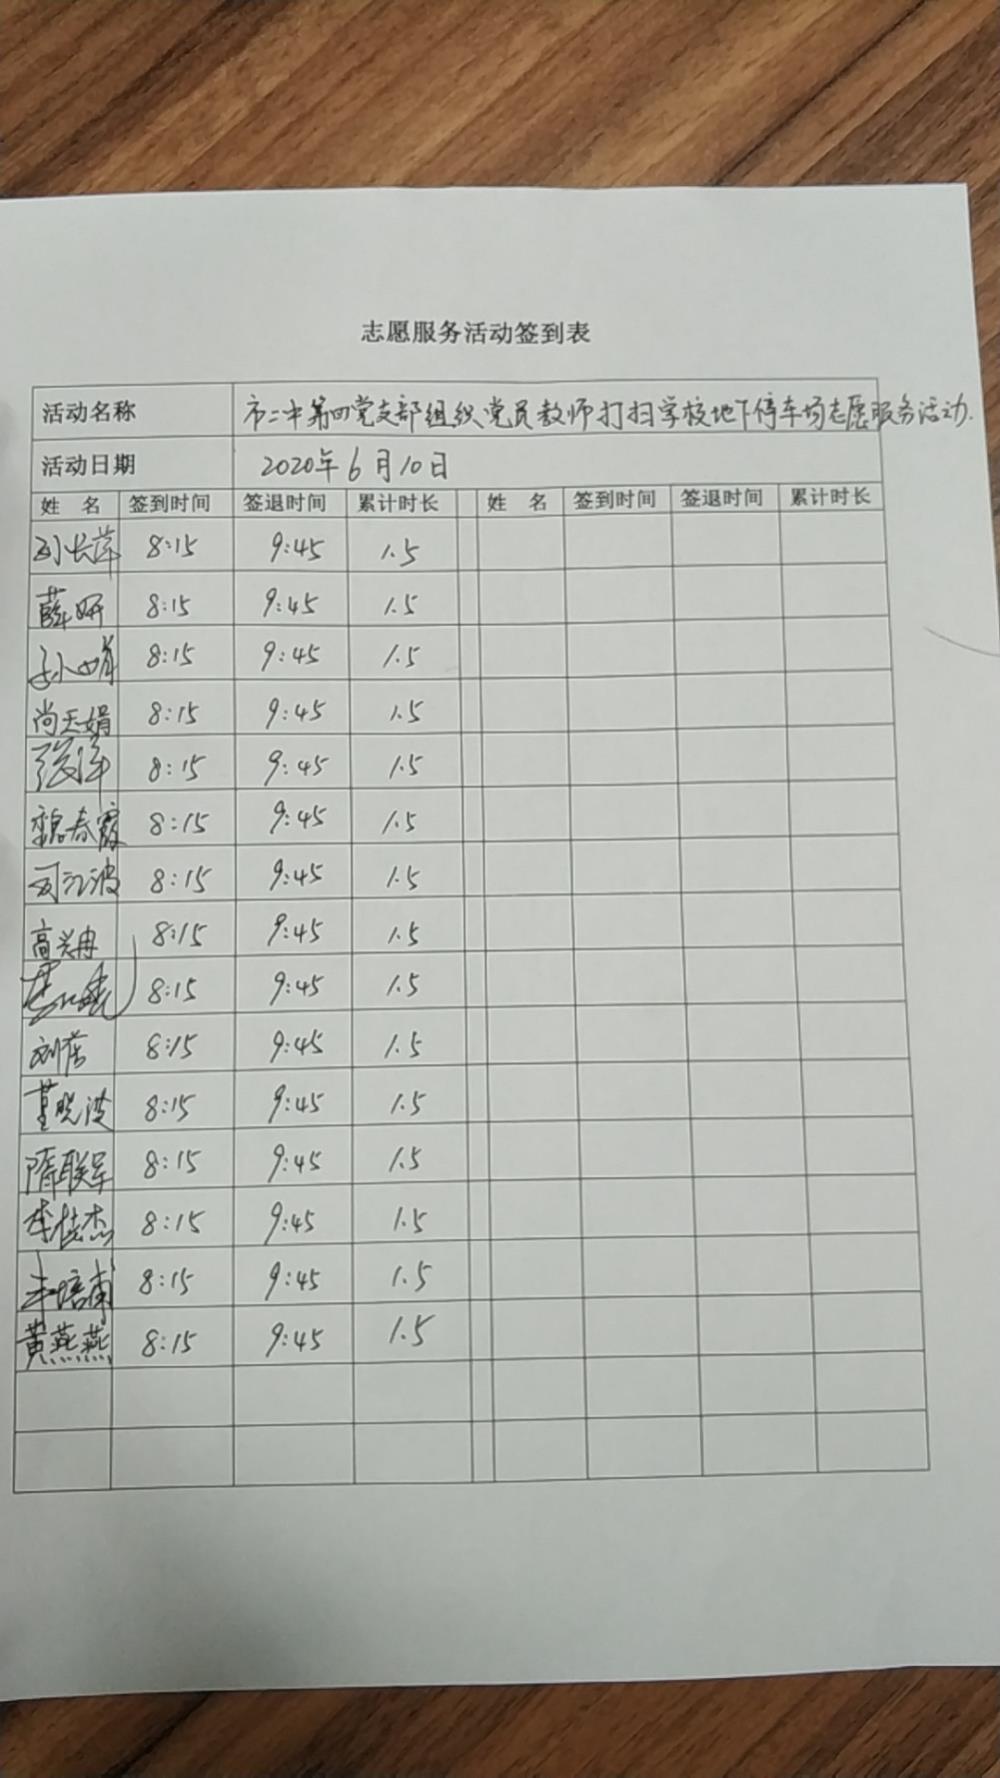 志愿服务活动签到表
活动名称 市二中第四党支部组织党员教师打扫学校地下停车场志愿服务活动.
活动日期 2020年6月10日
姓 名 签到时间 签退时间 累计时长 姓 名 签到时间 签退时间 累计时长
刘长萍 8:15 9:45 1.5
薛妍 8:15 9:45 1.5
孙娟 8:15 9:45 1.5
尚天娟 8:15 9:45 1.5
张萍 8:15 9:45 1.5
魏春霞 8:15 9:45 1.5
司江波 8:15 9:45 1.5
高兴冉 8:15 9:45 1.5
8:15 9:45 1.5
刘蓓 8:15 9:45 1.5
董晓波 8:15 9:45 1.5
隋联军 8:15 9:45 1.5
李杰 8:15 9:45 1.5
培 8:15 9:45 1.5
黄燕燕 8:15 9:45 1.5